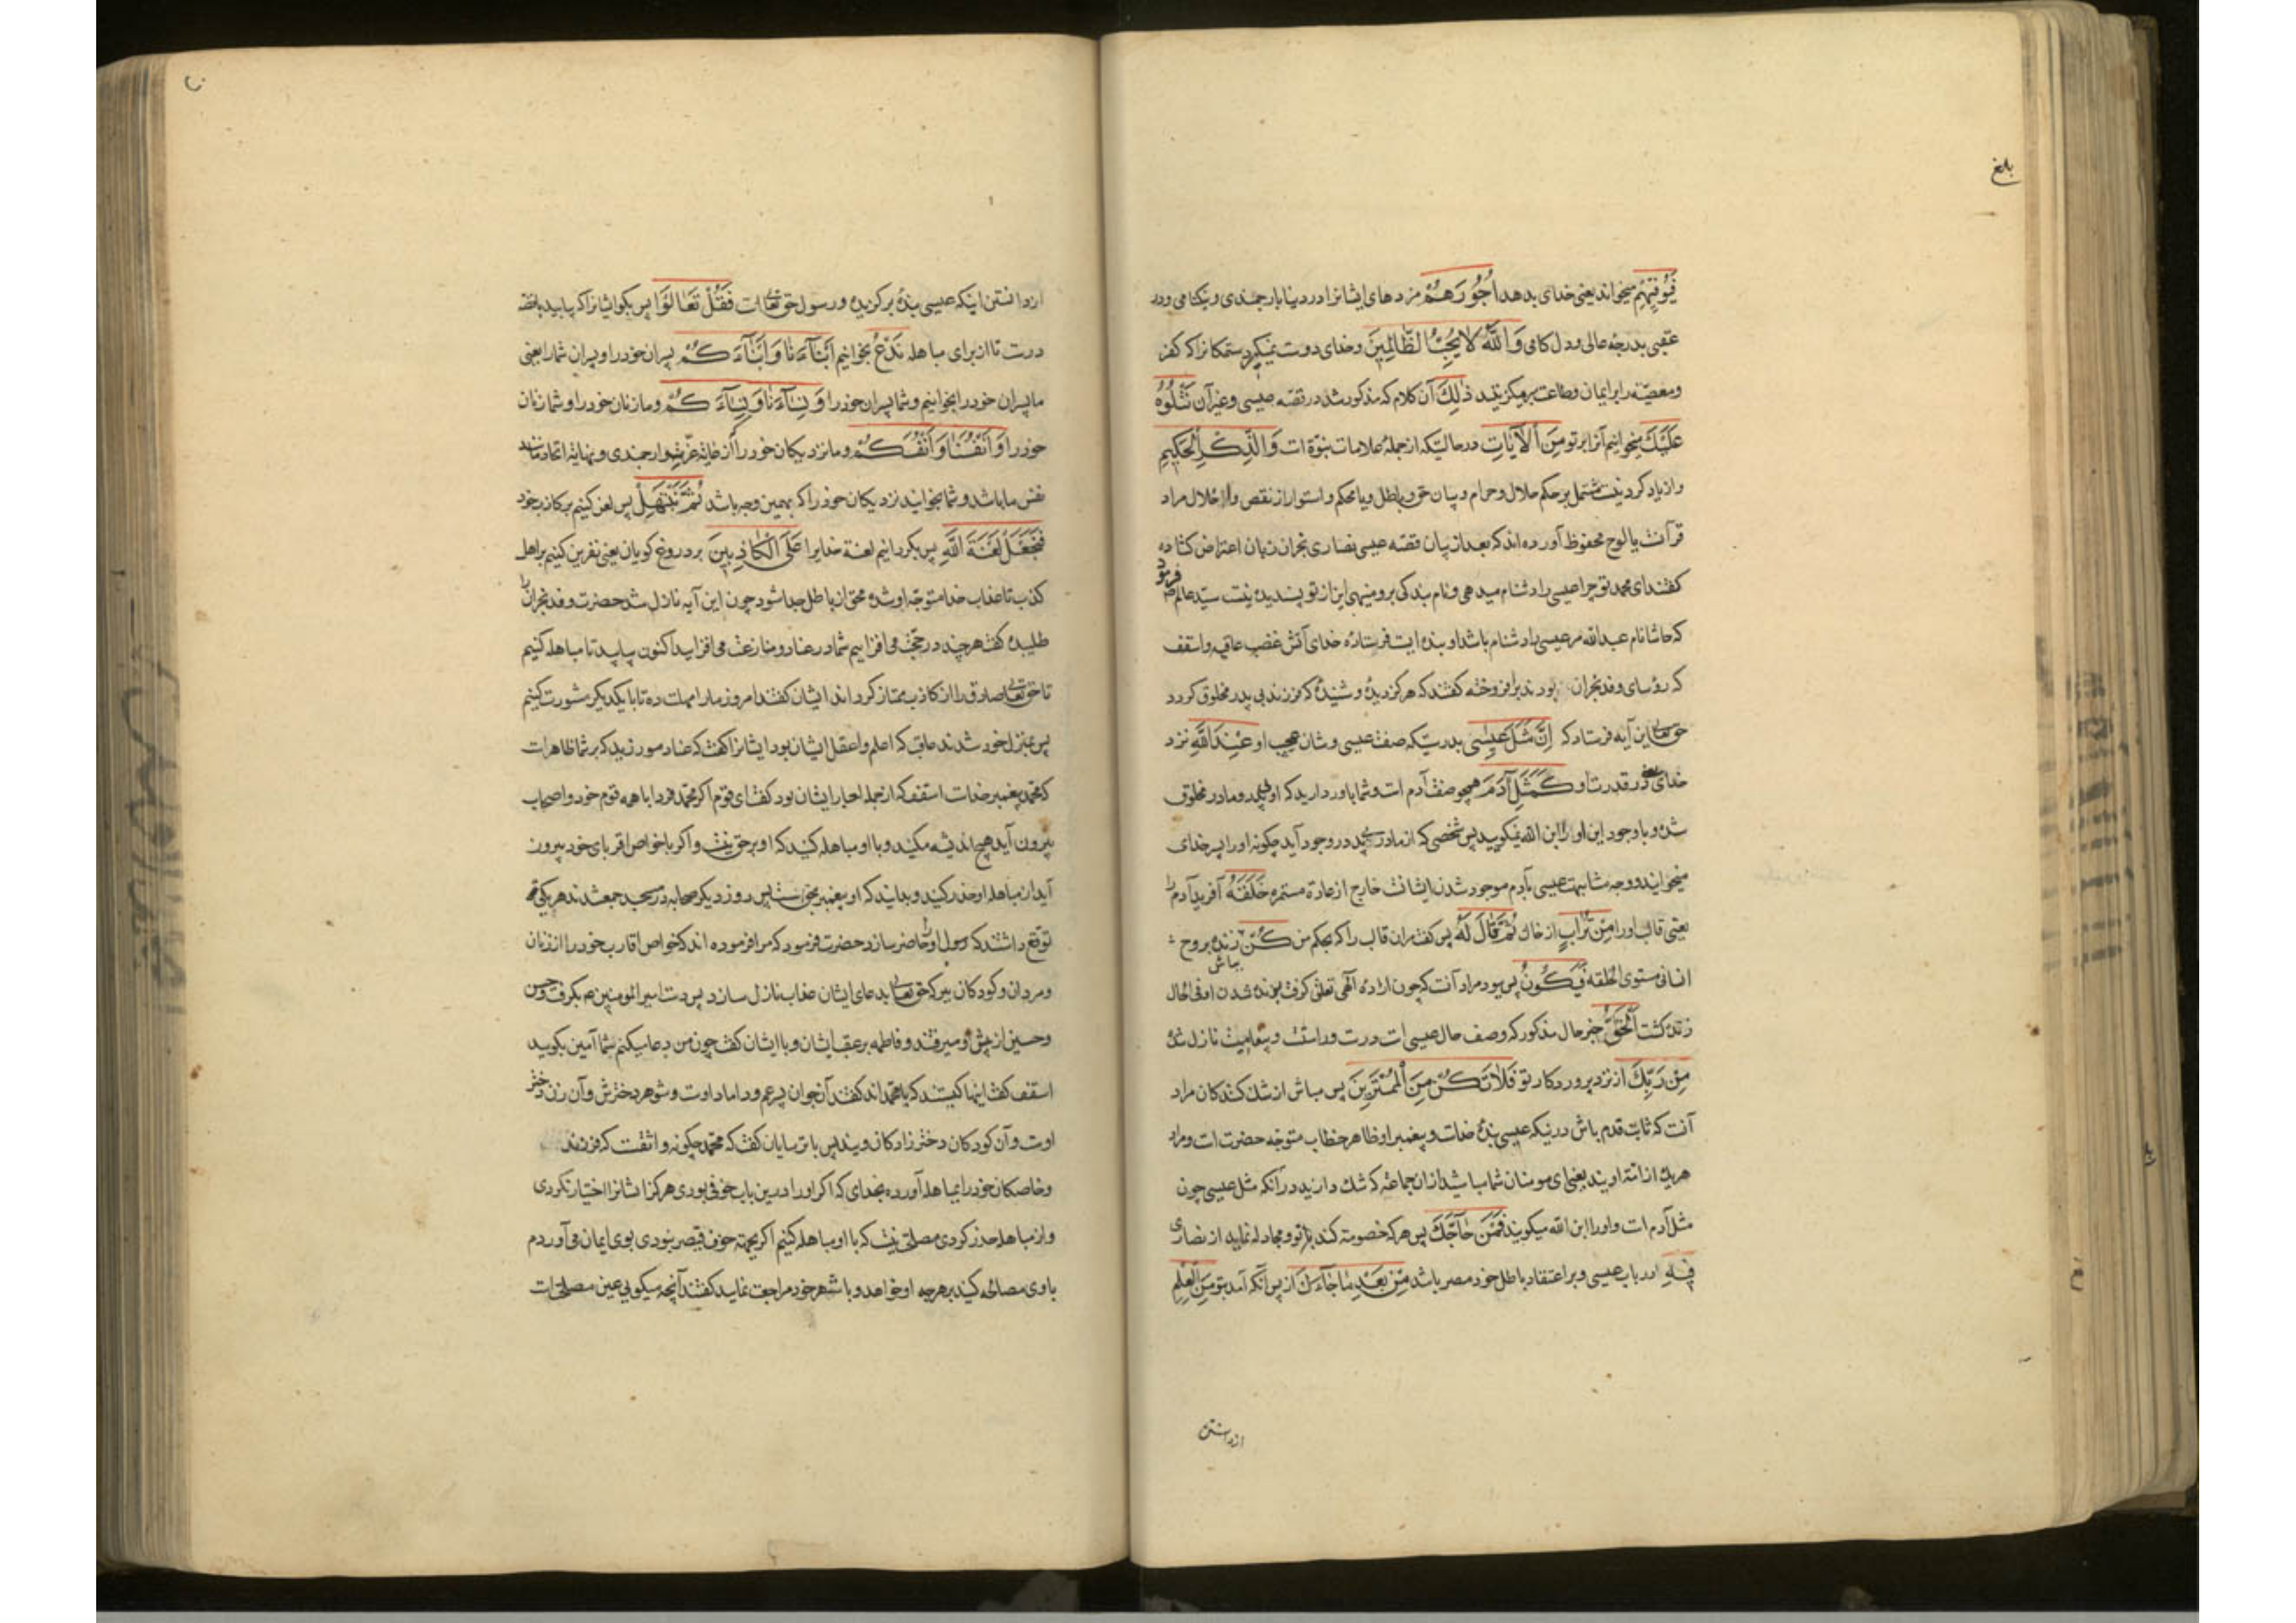 بلغ
فَيُوَفِّيهِمْ میخواند یعنی خدای بدهد أُجُورَهُمْ مزدهای ایشانرا در دنیا بارجمندی و نیکنامی و در
عقبی بدرجه عالی و دل کامی وَاللَّهُ لَا يُحِبُّ الظَّالِمِينَ و خدای دوست نمیگیرد ستمکانرا که کفر
و معصیة را بر ایمان و طاعت برمیگزینند ذَلِكَ آن کلام که مذکور شد در قصّه عیسی و غیر آن نَتْلُوهُ
عَلَيْكَ میخوانیم آنرا بر تو مِنَ الْآيَاتِ در حالتیکه از جمله علامات نبوّة است وَالذِّكْرِ الْحَكِيمِ
و از یاد کردنیست مشتمل بر حکم حلال و حرام و بیان حق و باطل و یا محکم و استوار از نقص و اخلال مراد
قرآنست یا لوح محفوظ آورده اند که بعد از بیان قصّه عیسی نصاری نجران زبان اعتراض کشاده
کفتند ای محمد تو چرا عیسی را دشنام میدهی و نام بندکی برو مینهی این از تو پسندیده نیست سیّد عالم ص فرمود
که حاشا نام عبد الله مر عیسی را دشنام باشد او بنده ایست فرستاده خدای آتش غضب عاقب و اسقف
که رؤسای وفد نجران بودند برافروخته کفتند که هرکز دیدهٔ و شنیدهٔ که فرزند بی پدر مخلوق کردد
حق تعالی این آیه فرستاد که إِنَّ مَثَلَ عِيسَى بدرستیکه صفت عیسی و شان عجیب او عِنْدَ اللَّهِ نزد
خدای یعنی در قدرت او كَمَثَلِ آدَمَ همچو صفت آدم است و شما باور دارید که او بی پدر و مادر مخلوق
شده و با وجود این او را ابن الله نمیکویید پس شخصی که از مادر بی پدر در وجود آید چکونه او را پسر خدای
میخوانید و وجه مشابهت عیسی بآدم موجود شدن ایشانست خارج از عادة مستمره خَلَقَهُ آفرید آدم را
یعنی قالب او را مِنْ تُرَابٍ از خاک ثُمَّ قَالَ لَهُ پس کفت مران قالب را که بحکم من كُنْ بباش زنده بروح
انسانی مستوی الخلقه فَيَكُونُ پس ببود مراد آنست که چون اراده آلهی تعلق کرفت بزنده شدن او فی الحال
زنده کشت الْحَقُّ خبر حال مذکور که وصف حال عیسی است درست و راست و پیغامیست نازل شده
مِنْ رَبِّكَ از نزد پروردکار تو فَلَا تَكُنْ مِنَ الْمُمْتَرِينَ پس مباش از شک کنندکان مراد
آنست که ثابت قدم باش درنیکه عیسی بندهٔ خداست و پیغمبر او ظاهر خطاب متوجه حضرت است و مراد
هریک از امّة اویند یعنی ای مومنان شما مباشید ازان جماعة که شک دارند در آنکه مثل عیسی چون
مثل آدم است و او را ابن الله میکویند فَمَنْ حَاجَّكَ پس هر که خصومة کند با تو و مجادله نماید از نصاری
فِيهِ در باب عیسی و بر اعتقاد باطل خود مصر باشد مِنْ بَعْدِ مَا جَاءَكَ از پس آنکه آمد بتو مِنَ الْعِلْمِ
از دانستن
از دانستن اینکه عیسی بندهٔ برکزیده و رسول حق تعالی است فَقُلْ تَعَالَوْا پس بکو ایشانرا که بیایید
درست تا از برای مباهله نَدْعُ بخوانیم أَبْنَاءَنَا وَأَبْنَاءَكُمْ پسران خود را و پسران شما را یعنی
ما پسران خود را بخوانیم و شما پسران خود را وَنِسَاءَنَا وَنِسَاءَكُمْ و ما زنان خود را و شما زنان
خود را وَأَنْفُسَنَا وَأَنْفُسَكُمْ و ما نزدیکان خود را که از غایة عزّت و ارجمندی و نهایة اتحاد
نفس ما باشد و شما بخوانید نزدیکان خود را که بهمین وجه باشد ثُمَّ نَبْتَهِلْ پس لعن کنیم بر کاذب خود
فَنَجْعَلْ لَعْنَةَ اللَّهِ پس بکردانیم لعنة خدایرا عَلَى الْكَاذِبِينَ بر دروغ کویان یعنی نفرین کنیم بر اهل
کذب تا عذاب خدا متوجه او شده محق از باطل جدا شود چون این آیه نازل شد حضرت وفد نجران را
طلبیده کفت هر چند در حجّت می افزاییم شما در عناد و منازعت می افزایید اکنون بیایید تا مباهله کنیم
تا حق تعالی صادق را از کاذب ممتاز کرداند ایشان کفتند امروز ما را مهلت ده تا با یکدیکر مشورت کنیم
پس بمنزل خود شدند عاقب که اعلم و اعقل ایشان بود ایشانرا کفت که عناد مورزید که بر شما ظاهر است
که محمد پیغمبر خداست اسقف که از جمله احبار ایشان بود کفت ای قوم اکر محمد فردا با همه قوم خود و اصحاب
بیرون آید هیچ اندیشه مکنید و با او مباهله کنید که او بر حق نیست و اکر با خواص اقربای خود بیرون
آید از مباهله او حذر کنید و بدانید که او پیغمبر بحق است پس روز دیکر صحابه در مسجد جمع شدند هر یکی
توقع داشتند که رسول او را حاضر سازد حضرت فرمود که مرا فرموده اند که خواص اقارب خود را از زنان
و مردان و کودکان ببر که حق تعالی بدعای ایشان عذاب نازل سازد پس دست امیر المومنین ع بکرفت و حسن
و حسین از پیش او میرفتند و فاطمه بر عقب ایشان و با ایشان کفت چون من دعا میکنم شما آمین بکویید
اسقف کفت اینها کیستند که با محمد اند کفتند آن جوان پسر عم و داماد اوست و شوهر دخترش و آن زن دختر
اوست و آن کودکان دختر زادکان ویند پس با ترسایان کفت که محمد چکونه واثقست که فرزند
و خاصکان خود را بمباهله آورده بخدای که اکر او را درین باب خوفی بودی هرکز ایشانرا اختیار نکردی
و از مباهله حذر کردی مصلحت نیست که با او مباهله کنیم اکر بجهة خوف قیصر نبودی بوی ایمان می آوردم
با وی مصالحه کنید بر هر چه او خواهد و با شهر خود مراجعت نمایید کفتند آنچه میکویی عین مصلحت است